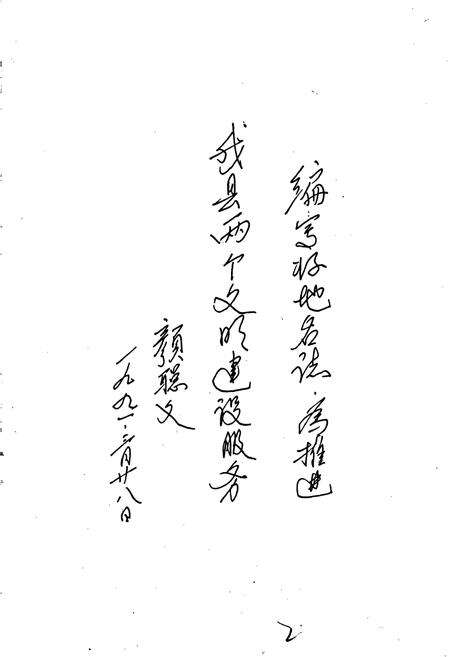 编写好地名誌，为推进
我县两个文明建设服务
颜聪文
一九九一.三月廿八日
2